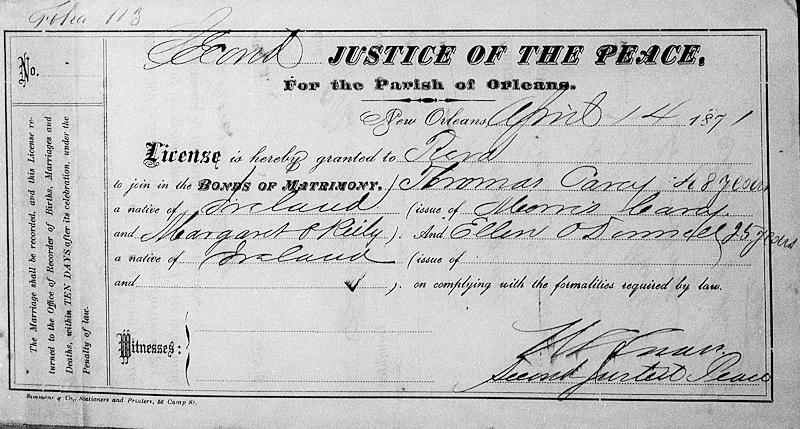 Folio 113
Second JUSTICE OF THE PEACE,
For the Parish of Orleans.
New Orleans, April 14 1871
License is hereby granted to Revd
to join in the BONDS OF MATRIMONY, Thomas Carey, 48 years
a native of Ireland (issue of Morris Carey
and Margaret OReily). And Ellen ODonnell (25 years
a native of Ireland (issue of
and ). on complying with the formalities required by law.
Witnesses:
Second Justice Peace
No.
The Marriage shall be recorded, and this License re-
turned to the Office of Recorder of Births, Marriages and
Deaths, within TEN DAYS after its celebration, under the
Penalty of law.
& Co., Stationers and Printers, 56 Camp St.